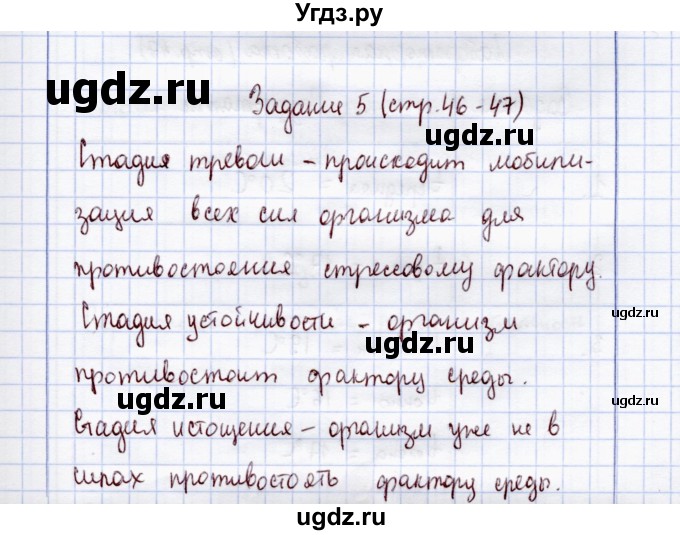 Угдз.ру
ugdz.ru
Задание 5 (стр.46-47)
ugdz.ru
Стадия тревоги - происходит мобили-
зация всех сил организма для
противостояния стрессовому фактору.
ugdz.ru
Стадия устойчивости - организм
ugdz.ru
противостоит фактору среды.
ugdz.ru
ugdz.ru
Стадия истощения - организм уже не в
силах противостоять фактору среды.
ugdz.ru
ugdz.ru